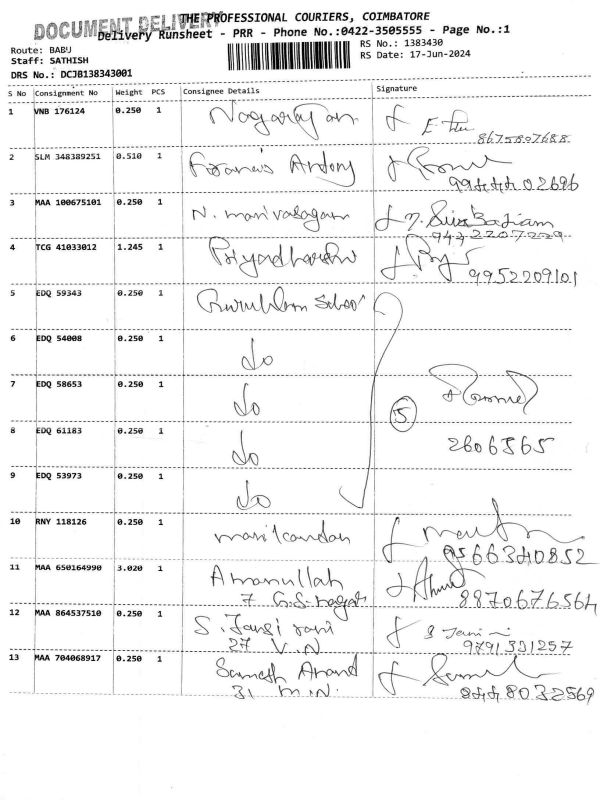 DOCUMENT DELIVERY
THE PROFESSIONAL COURIERS, COIMBATORE
Delivery Runsheet - PRR - Phone No.:0422-3505555 - Page No.:1
Route: BABU
RS No.: 1383430
Staff: SATHISH
RS Date: 17-Jun-2024
DRS No.: DCJB138343001
S No Consignment No Weight PCS Consignee Details Signature
1 VNB 176124 0.250 1 Nagarajan
8675807688
2 SLM 348389251 0.510 1 Francis Antony
9944402696
3 MAA 100675101 0.250 1 N. manivasagam
9442207229
4 TCG 41033012 1.245 1 Priyadharshi
9952209101
5 EDQ 59343 0.250 1 Gurukulam School
6 EDQ 54008 0.250 1 do
7 EDQ 58653 0.250 1 do 5
8 EDQ 61183 0.250 1 do 2606565
9 EDQ 53973 0.250 1 do
10 RNY 118126 0.250 1 manikandan
9566340852
11 MAA 650164990 3.020 1 Amanullah
7 G.S. nagar 8870676564
12 MAA 864537510 0.250 1 S. Jansi rani
27 V.N 9791331257
13 MAA 704068917 0.250 1 Anand
31 M.N. 8448032569